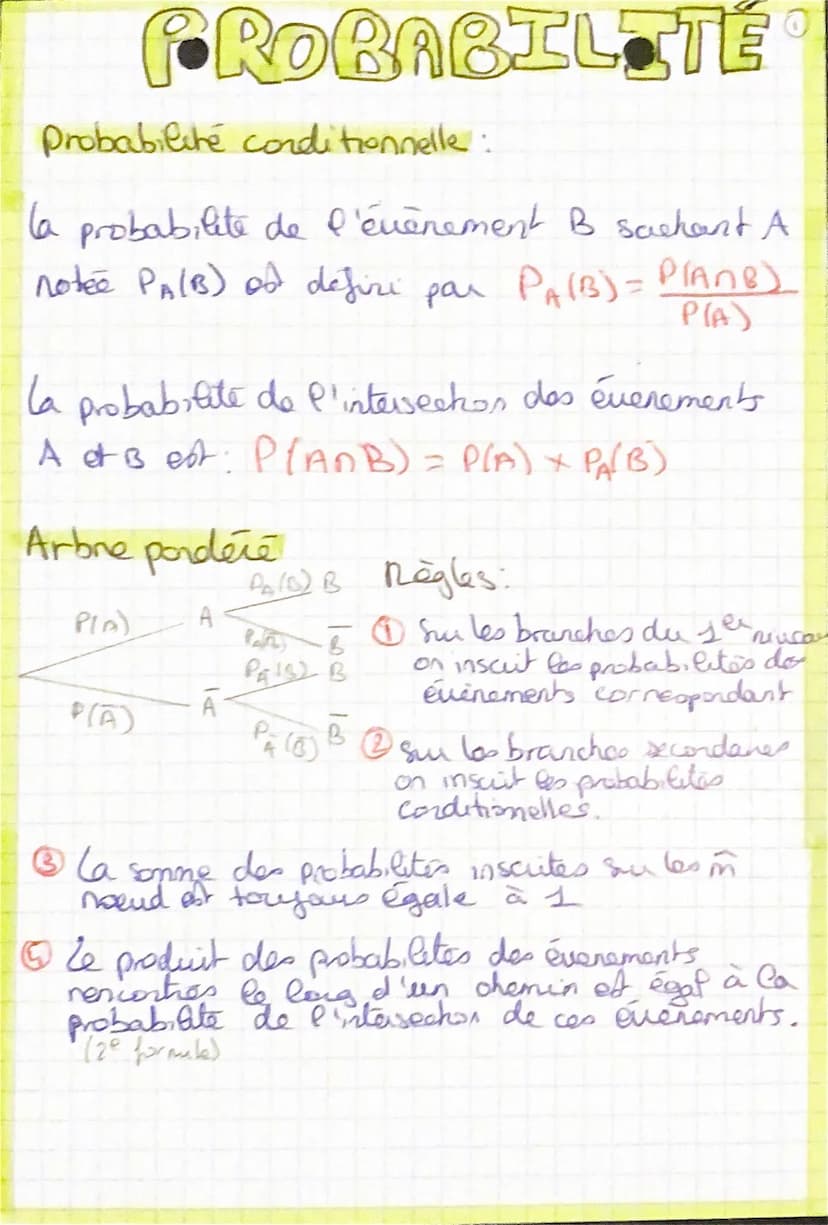 PROBABILITÉ
1
Probabilité conditionnelle :
la probabilité de l'évènement B sachant A
notée PA(B) est défini par PA(B) = P(A∩B) / P(A)
la probabilité de l'intersection des évenements
A et B est : P(A∩B) = P(A) × PA(B)
Arbre pondéré
Règles :
PA(B) B
P(A) A
PA(B̅) B̅
PA̅(B) B
P(A̅) A̅
PA̅(B̅) B̅
① Sur les branches du 1er niveau
on inscrit les probabilités des
évènements correspondant
② Sur les branches secondaires
on inscrit les probabilités
conditionelles.
③ La somme des probabilités inscrites sur les m̂
noeud est toujours égale à 1
Le produit des probabilités des évenements
rencontrés le long d'un chemin est égal à la
probabilité de l'intersection de ces évènements.
(2e formule)